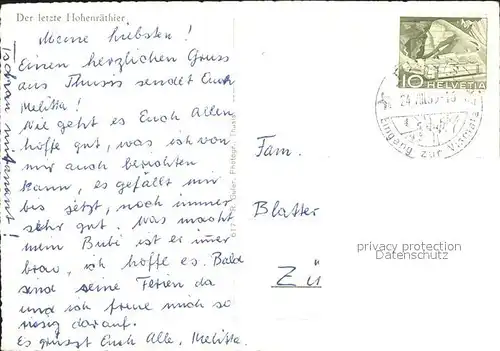 Der letzte Hohenräthier
Meine Liebsten!
Einen herzlichen Gruss
aus Thusis sendet Euch
Melitta!
Wie geht es Euch Allen,
hoffe gut, was ich von
mir auch berichten
kann, es gefällt mir
bis jetzt, noch immer
sehr gut. Was macht
mein Bubi ist er imer
brav, ich hoffe es. Bald
sind seine Ferien da
und ich freue mich so
riesig darauf.
Es grüsst Euch Alle, Melitta.
Tschau mitenand!
Photogr. Thusis
10
HELVETIA
24.VIII.
Fam.
Blatter
Zü
privacy protection
Datenschutz